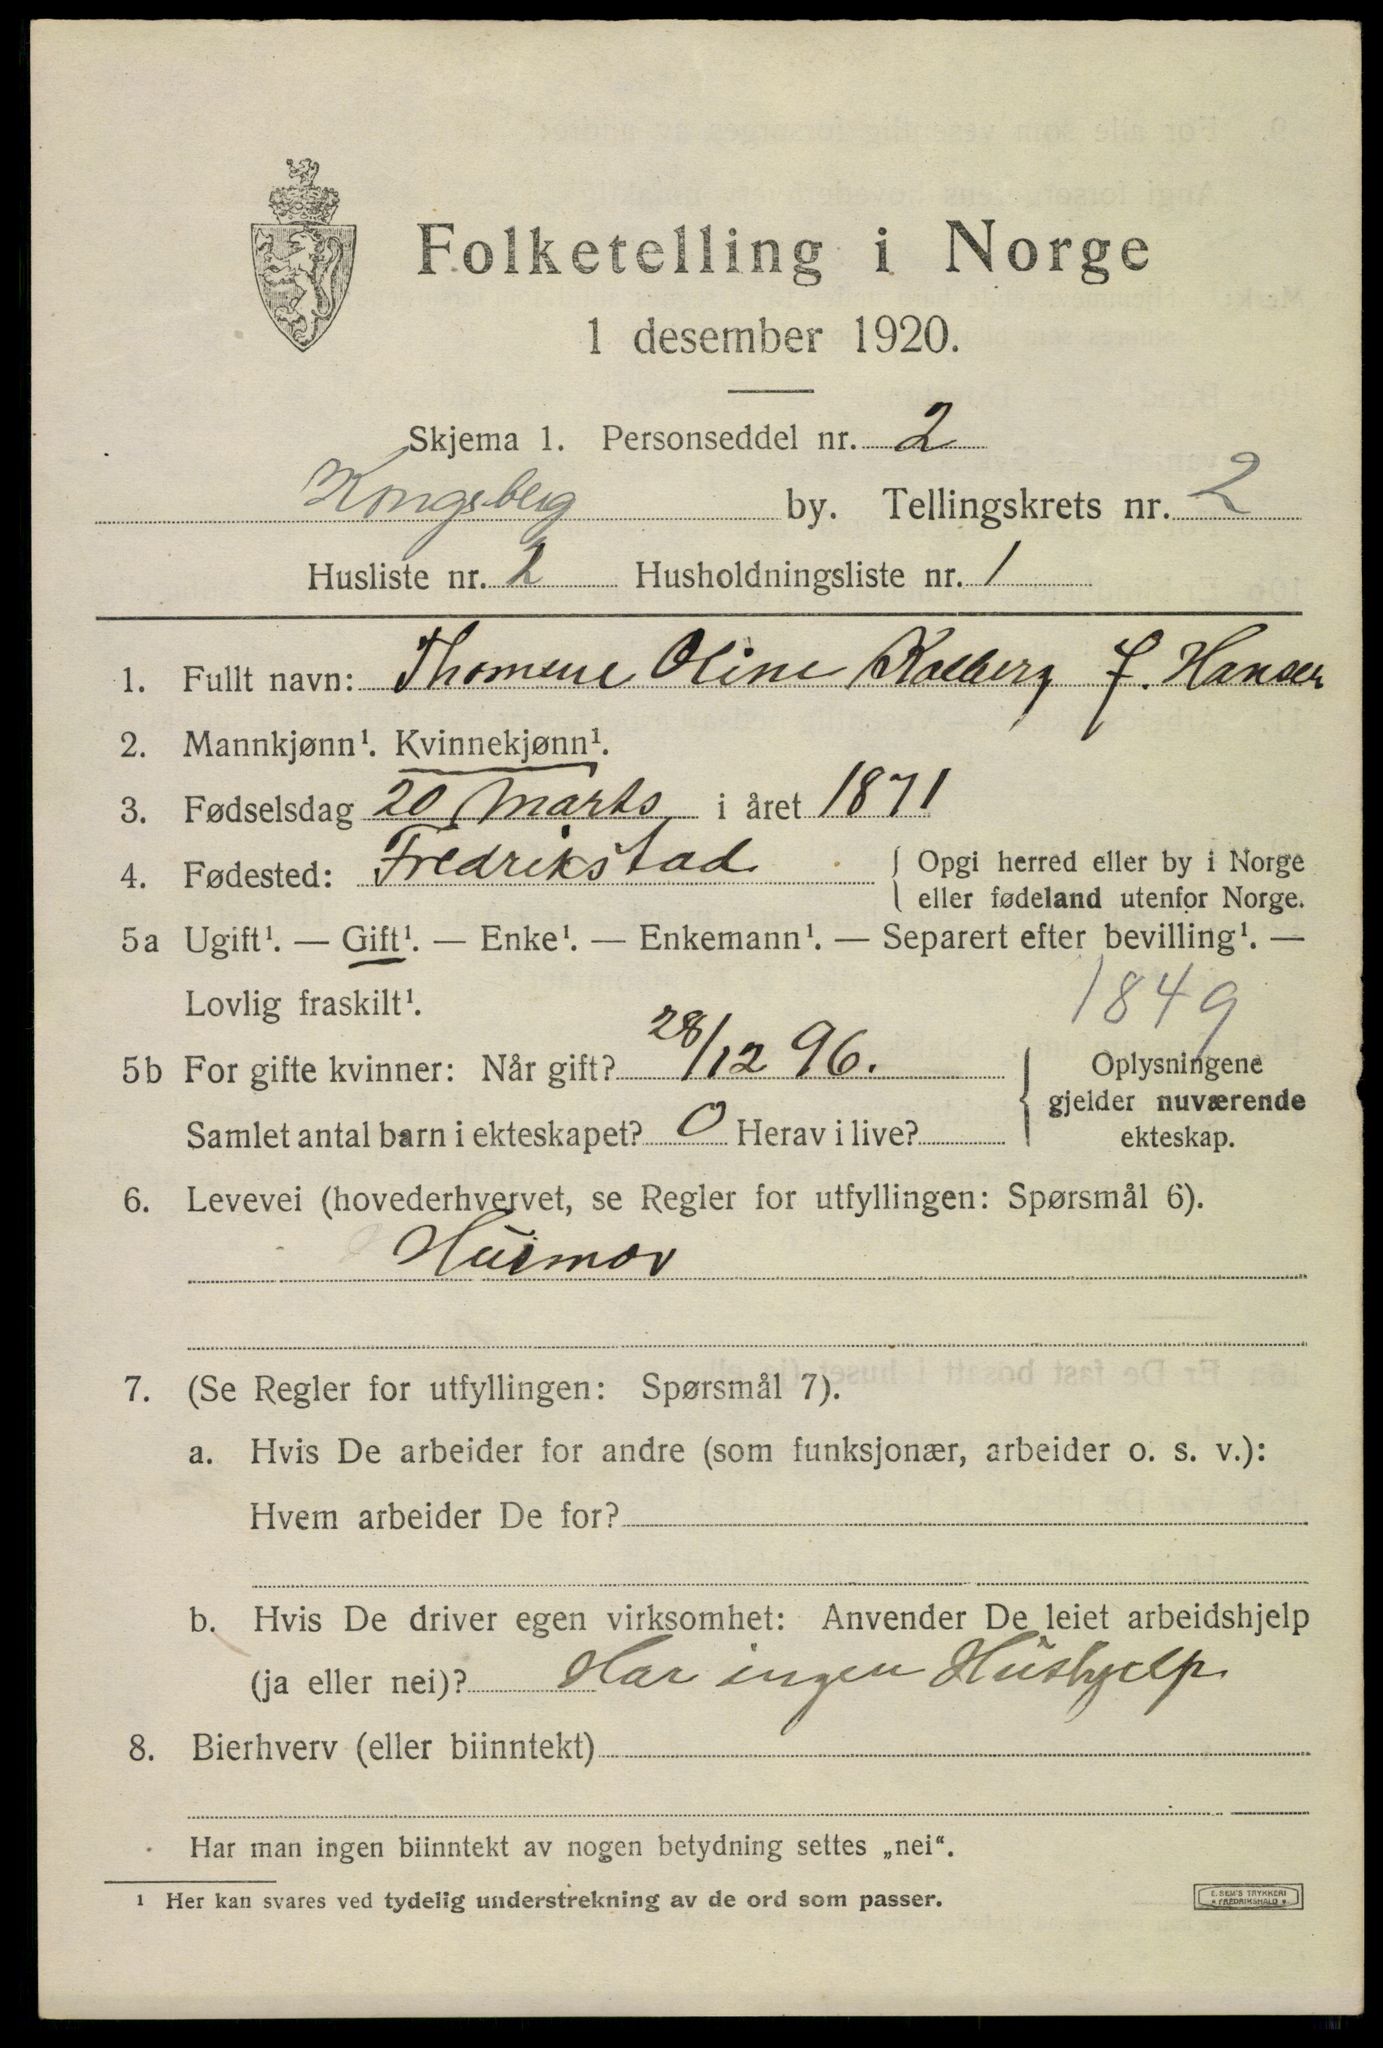 Folketelling i Norge
1 desember 1920.
Skjema 1. Personseddel nr. 2
Kongsberg by. Tellingskrets nr. 2
Husliste nr. 2 Husholdningsliste nr. 1
1. Fullt navn: Thomene Oline Kolberg f. Hansen
2. Mannkjønn¹. Kvinnekjønn¹.
3. Fødselsdag 20 Marts i året 1871
4. Fødested: Fredrikstad { Opgi herred eller by i Norge
eller fødeland utenfor Norge.
5a Ugift¹. — Gift¹. — Enke¹. — Enkemann¹. — Separert efter bevilling¹. —
Lovlig fraskilt¹. 1849
5b For gifte kvinner: Når gift? 28/12 96. { Oplysningene
gjelder nuværende
Samlet antal barn i ekteskapet? 0 Herav i live? ekteskap.
6. Levevei (hovederhvervet, se Regler for utfyllingen: Spørsmål 6).
Husmor
7. (Se Regler for utfyllingen: Spørsmål 7).
a. Hvis De arbeider for andre (som funksjonær, arbeider o. s. v.):
Hvem arbeider De for?
b. Hvis De driver egen virksomhet: Anvender De leiet arbeidshjelp
(ja eller nei)? Har ingen Hushjelp
8. Bierhverv (eller biinntekt)
Har man ingen biinntekt av nogen betydning settes „nei“.
¹ Her kan svares ved tydelig understrekning av de ord som passer.
E. SEM'S TRYKKERI
* FREDRIKSHALD *